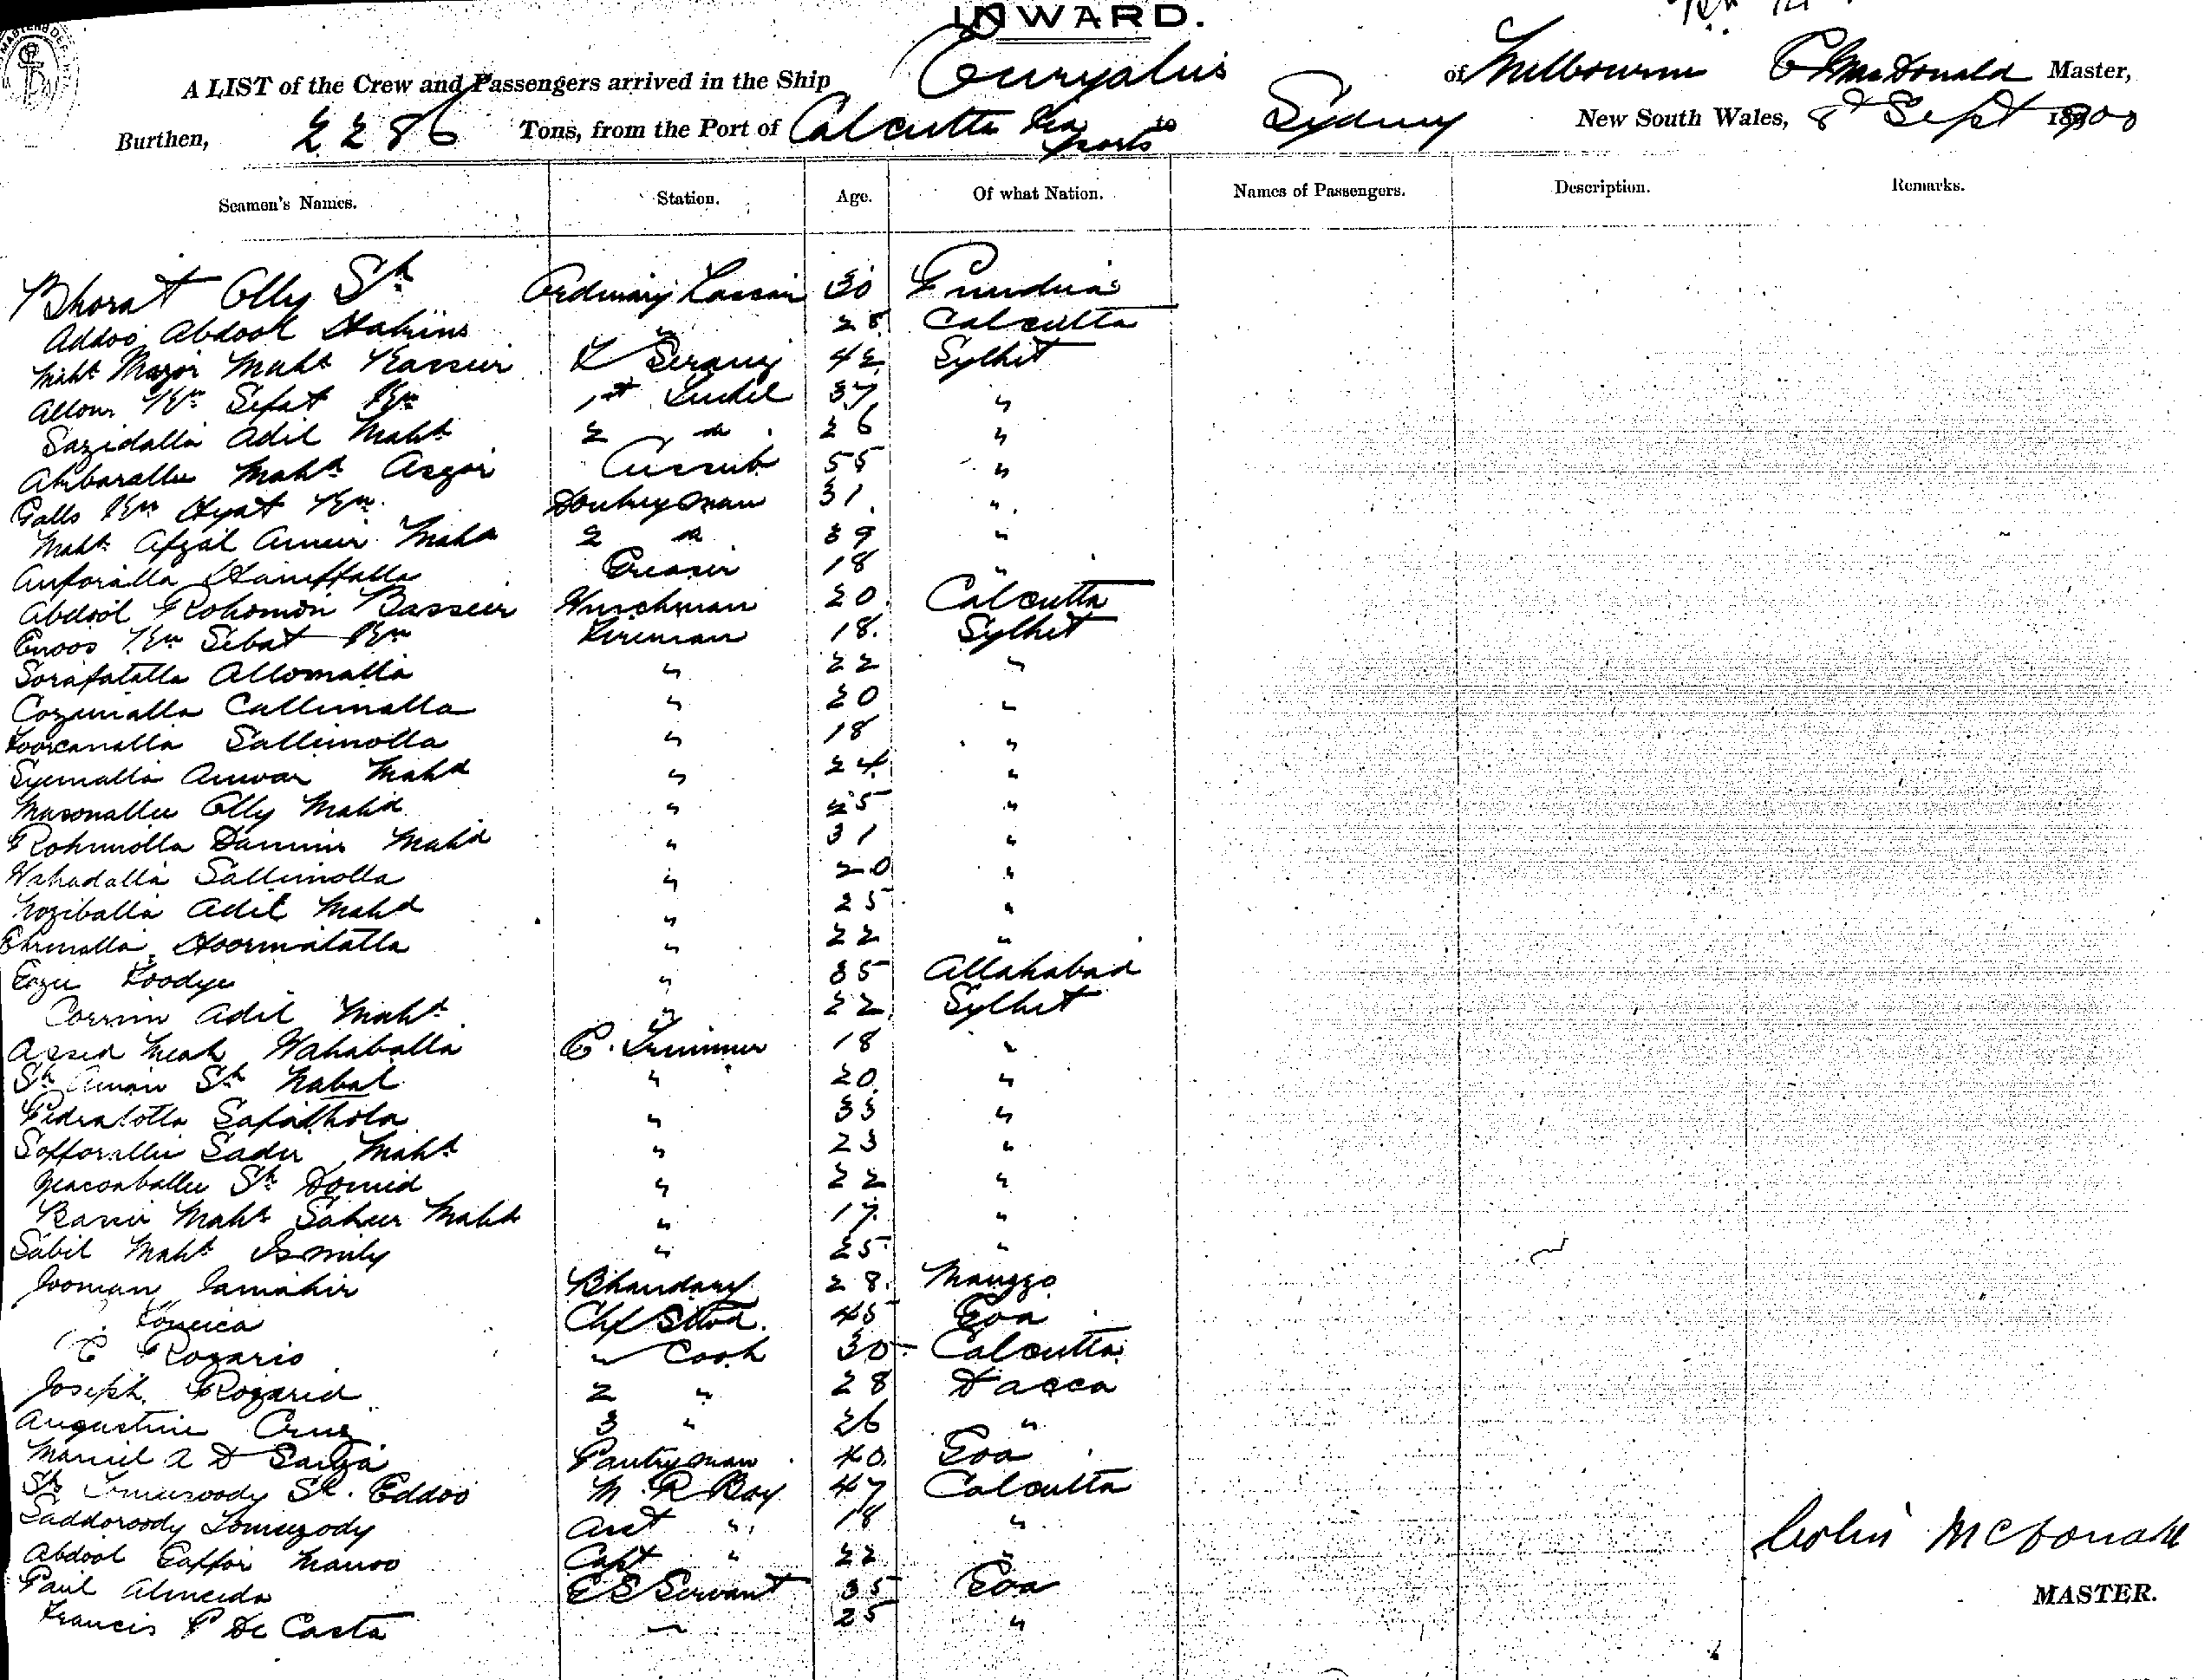 INWARD.
A LIST of the Crew and Passengers arrived in the Ship Euryalus of Melbourne C McDonald Master,
Burthen, 2286 Tons, from the Port of Calcutta via ports to Sydney New South Wales, 8th Sept 1900
Seamen's Names. Station. Age. Of what Nation. Names of Passengers. Description. Remarks.
Bhorat Olly Sk Ordinary Lascar 30
Addoo Abdool Hakims " 28 Calcutta
Maht Major Maht Nassur Serang 42 Sylhet
Sefat 1st Tindel 37 "
Sazidalla Adil Maht 2 " 26 "
Akbarallee Maht Asgor Cussub 55 "
Hyat Donkeyman 31 "
Maht Afzal Ameer Mahd 2 " 39 "
Haniffalla Greaser 18 "
Abdool Rohomon Basseer Winchman 20 Calcutta
Sebat Fireman 18 Sylhet
Sorafatalla Allomalla " 22 "
Cozimalla Callimalla " 20 "
Sallimolla " 18 "
Syemalla Anwar Mahd " 24 "
Masonallee Olly Mahd " 25 "
Rohimolla Damim Mahd " 31 "
Wahadalla Sallimolla " 20 "
Noziballa Adil Mahd " 25 "
Hoormatalla " 22 "
Foodye " 35 Allahabad
Corrim Adil Maht " 22 Sylhet
Assed Meah Wahaballa C. Trimmer 18 "
Sk Aman Sk Nabal " 20 "
" 33 "
Sofforallee Sader Maht " 23 "
Sk Domid " 22 "
Maht Saheer Mahd " 17 "
Sabil Maht Ismily " 25 "
Jooman Jamahir Bhandary 28
Fonceca Chf Stwd. 45 Goa
C Rozario " Cook 30 Calcutta
Joseph Rozario 2 " 28 Dacca
Augustine Cruz 3 " 26 "
Manuel A D Souza Pantryman 40 Goa
Sk Sk. Eddoo M R Boy 47 Calcutta
Saddoroody Tomeezody Asst " 18 "
Abdool Gaffor Manoo Capt " 22 "
Paul Almeida E S Servant 35 Goa
Francis P De Casta " 25 "
Colin McDonald
MASTER.